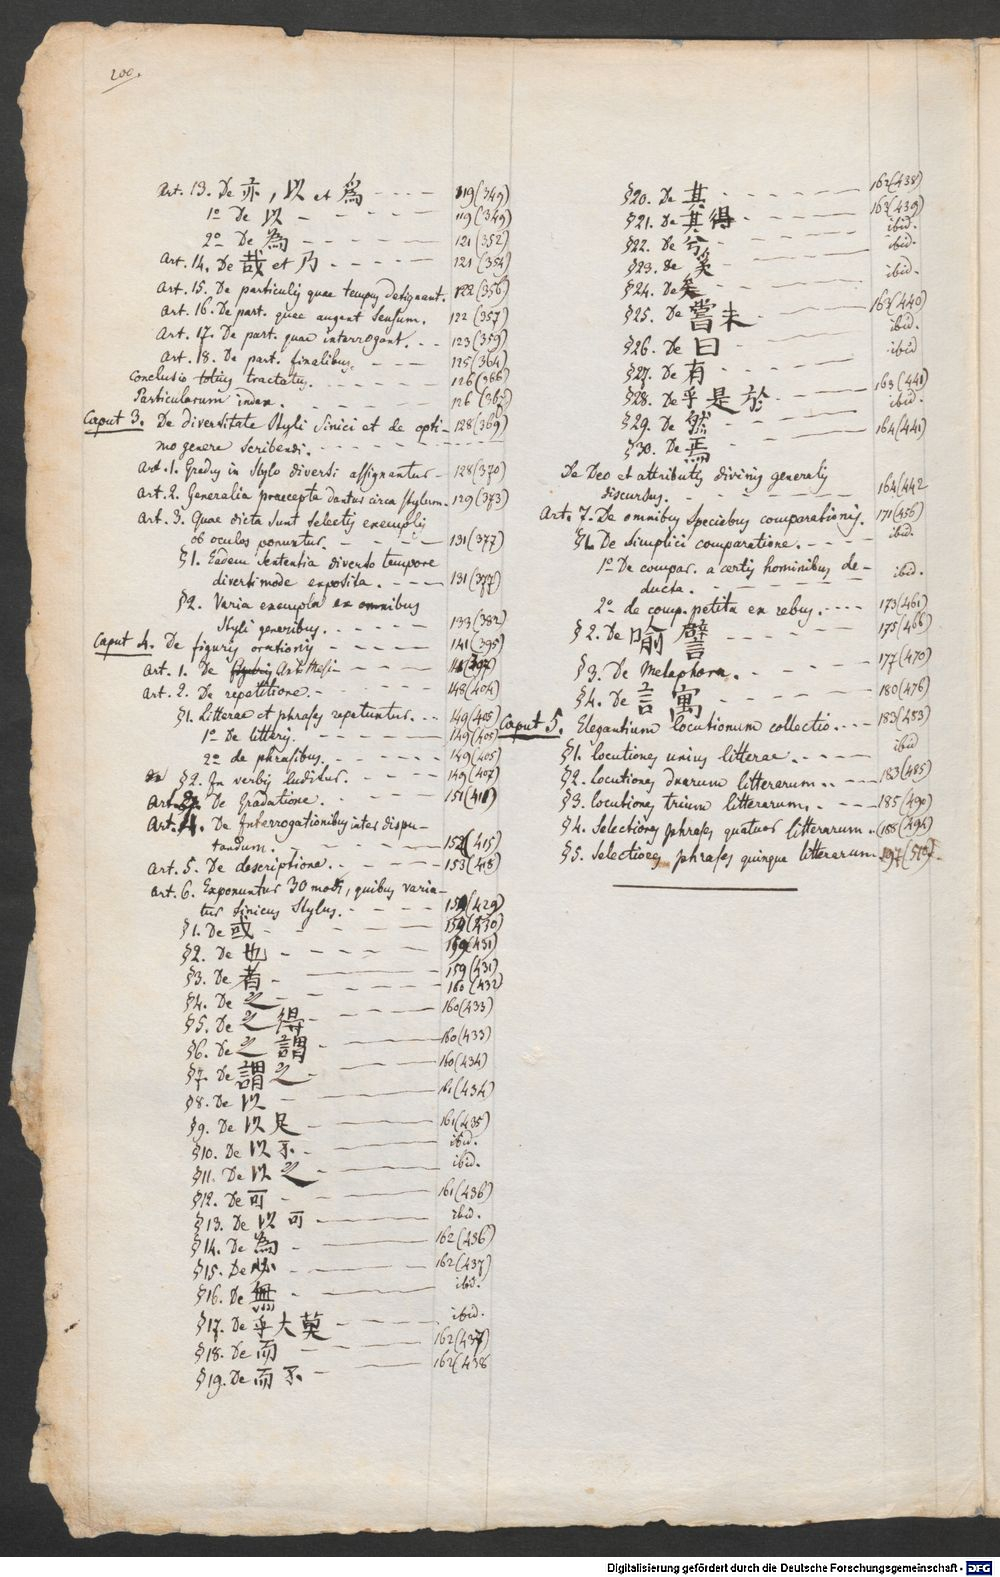 200.
Art. 13. De 亦, 以 et 爲 119(349)
1º De 以 119(349)
2º De 為 121(352)
Art. 14. De 哉 et 乃 121(354)
Art. 15. De particulis quae tempus designant. 122(356)
Art. 16. De part. quae augent sensum. 122(357)
Art. 17. De part. quae interrogant. 123(359)
Art. 18. De part. finalibus. 125(364)
Conclusio totius tractatus. 126(366)
Particularum index. 126
Caput 3. De diversitate Styli Sinici et de opti- 128(369)
mo genere scribendi.
Art. 1. Gradus in Stylo diversi assignantur 128(370)
Art. 2. Generalia praecepta dantur circa Stylum. 129(373)
Art. 3. Quae dicta sunt selectis exemplis
ob oculos ponuntur. 131(377)
§1. Eadem sententia diverso tempore
diversimode exposita. 131(377)
§2. Varia exempla ex omnibus
Styli generibus. 133(382)
Caput 4. De figuris orationis 141(395)
Art. 1. De Antithesi
Art. 2. De repetitione. 148(404)
§1. Litterae et phrases repetuntur. 149(405)
1º De litteris. 149(405)
2º de phrasibus. 149(405)
§2. In verbis luditur. 149(407)
Art. 3. De Gradatione. 151(411)
Art. 4. De Interrogationibus inter dispu-
tandum. 152(415)
Art. 5. De descriptione. 153(418)
Art. 6. Exponuntur 30 modi, quibus varia-
tur Sinicus Stylus. 159(429)
§1. De 或 159(430)
§2. De 也 159(431)
§3. De 者 159(431)
§4. De 之 160(432)
§5. De 之 得 160(433)
§6. De 之 謂 160(433)
§7. De 謂 之 160(434)
§8. De 以 161(434)
§9. De 以 足 161(435)
§10. De 以 不 ibid.
§11. De 以 之 ibid.
§12. De 可 161(436)
§13. De 以 可 ibid.
§14. De 為 162(436)
§15. De 必 162(437)
§16. De 無 ibid.
§17. De 乎 大 莫 ibid.
§18. De 而 162(437)
§19. De 而 不 162(438
§20. De 其 162(438)
§21. De 其 得 163(439)
§22. De 兮 ibid.
§23. De ibid.
§24. De 矣 ibid.
§25. De 嘗 未 163(440)
§26. De 曰 ibid.
§27. De 有 ibid
§28. De 乎 是 於 163(441)
§29. De 然 ibid.
§30. De 焉 164(441)
De Deo et attributis divinis generalis
discursus. 164(442
Art. 7. De omnibus speciebus comparationis. 171(456)
§1. De simplici comparatione. ibid.
1º De compar. a certis hominibus de-
ducta. ibid.
2º de comp. petita ex rebus. 173(461)
§2. De 喻 譬 175(466)
§3. De Metaphora. 177(470)
§4. De 言 寓 180(476)
Caput 5. Elegantium locutionum collectio. 183(483)
§1. locutiones unius litterae. ibid
§2. locutiones duarum litterarum. 183(485)
§3. locutiones trium litterarum. 185(490)
§4. Selectiores phrases quatuor litterarum. 188(494)
§5. Selectiores phrases quinque litterarum 197
Digitalisierung gefördert durch die Deutsche Forschungsgemeinschaft - DFG